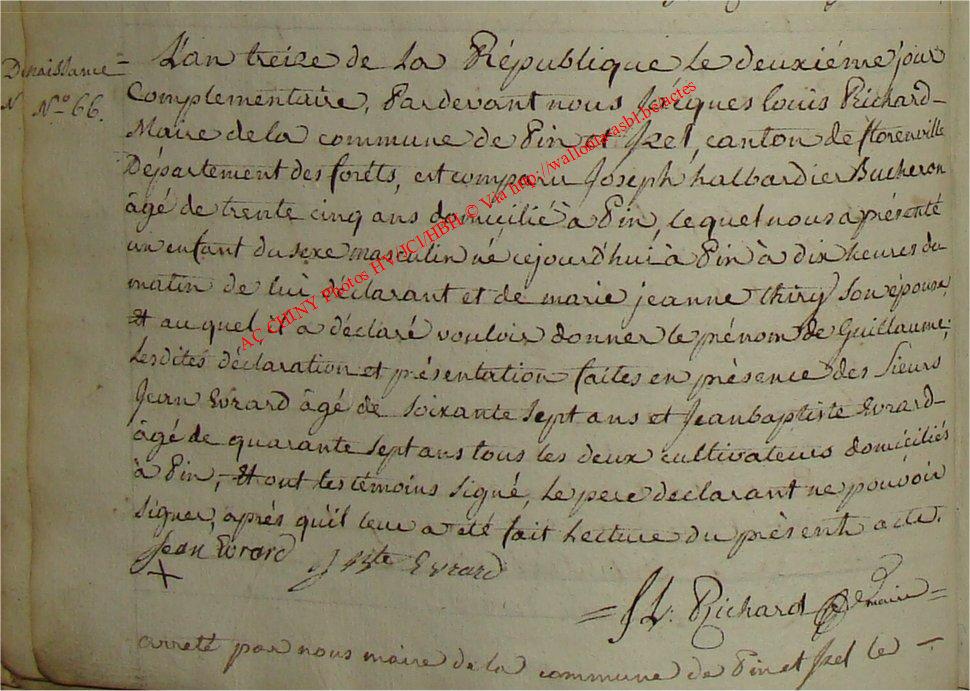 De naissance
N. N.º 66.
L'an treize de la République le deuxiéme jour
Complémentaire, Pardevant nous Jacques louis Richard
Maire de la commune de Pin et Izel, canton de florenville
Département des forêts, est comparu Joseph halbardier Bucheron
âgé de trente cinq ans domicilié à Pin, lequel nous a présenté
un enfant du sexe masculin né cejourd'hui à Pin à dix heures du
matin de lui déclarant et de marie jeanne thiry son épouse,
Et auquel il a déclaré vouloir donner le prénom de Guillaume;
Lesdites déclaration et présentation faites en présence des Sieurs
Jean Evrard âgé de soixante sept ans et Jeanbaptiste Evrard
âgé de quarante sept ans tous les deux cultivateurs domiciliés
à Pin, Et ont les témoins signé, le pere declarant ne pouvoir
signer, aprés qu'il leur a été fait Lecture du présent acte.
Jean Evrard J Bte Evrard
= J L. Richard maire =
arreté par nous maire de la commune de Pin et Izel le -
AC CHINY Photos HV/JCl/HBH © Via http://wallonia.asbl.be/actes